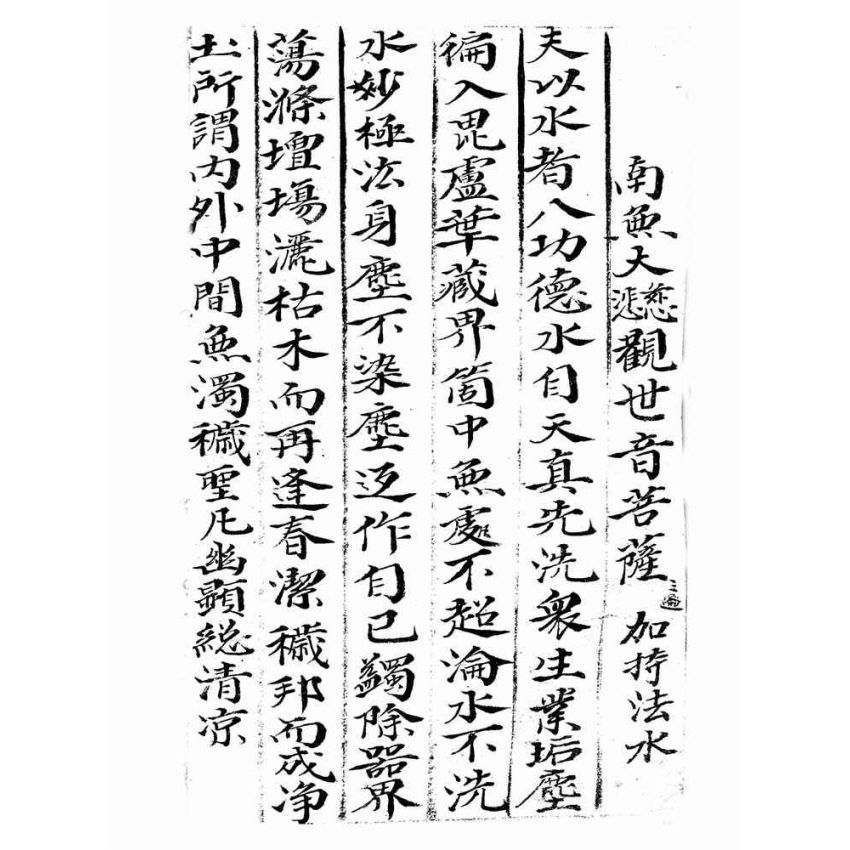 南無大慈悲觀世音菩薩三遍 加持法水
夫以水者八功德水自天真先洗衆生業垢塵
徧入毘盧華藏界箇中無處不超淪水不洗
水妙極法身塵不染塵返作自己蠲除器界
蕩滌壇場灑枯木而再逢春潔穢邦而成淨
土所謂內外中間無濁穢聖凡幽顯総清凉